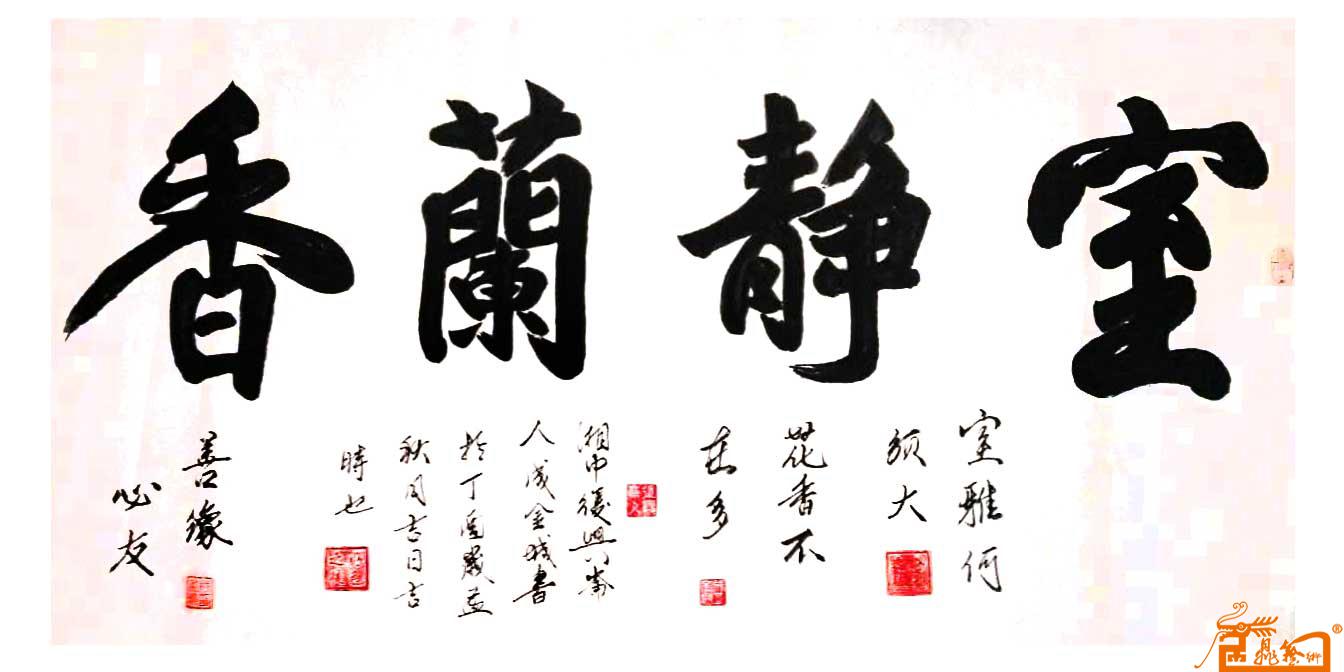 室靜蘭香
室雅何
須大
花香不
在多
湘中復興
人成金城書
於丁酉歲孟
秋月吉日吉
時也
善緣
必友